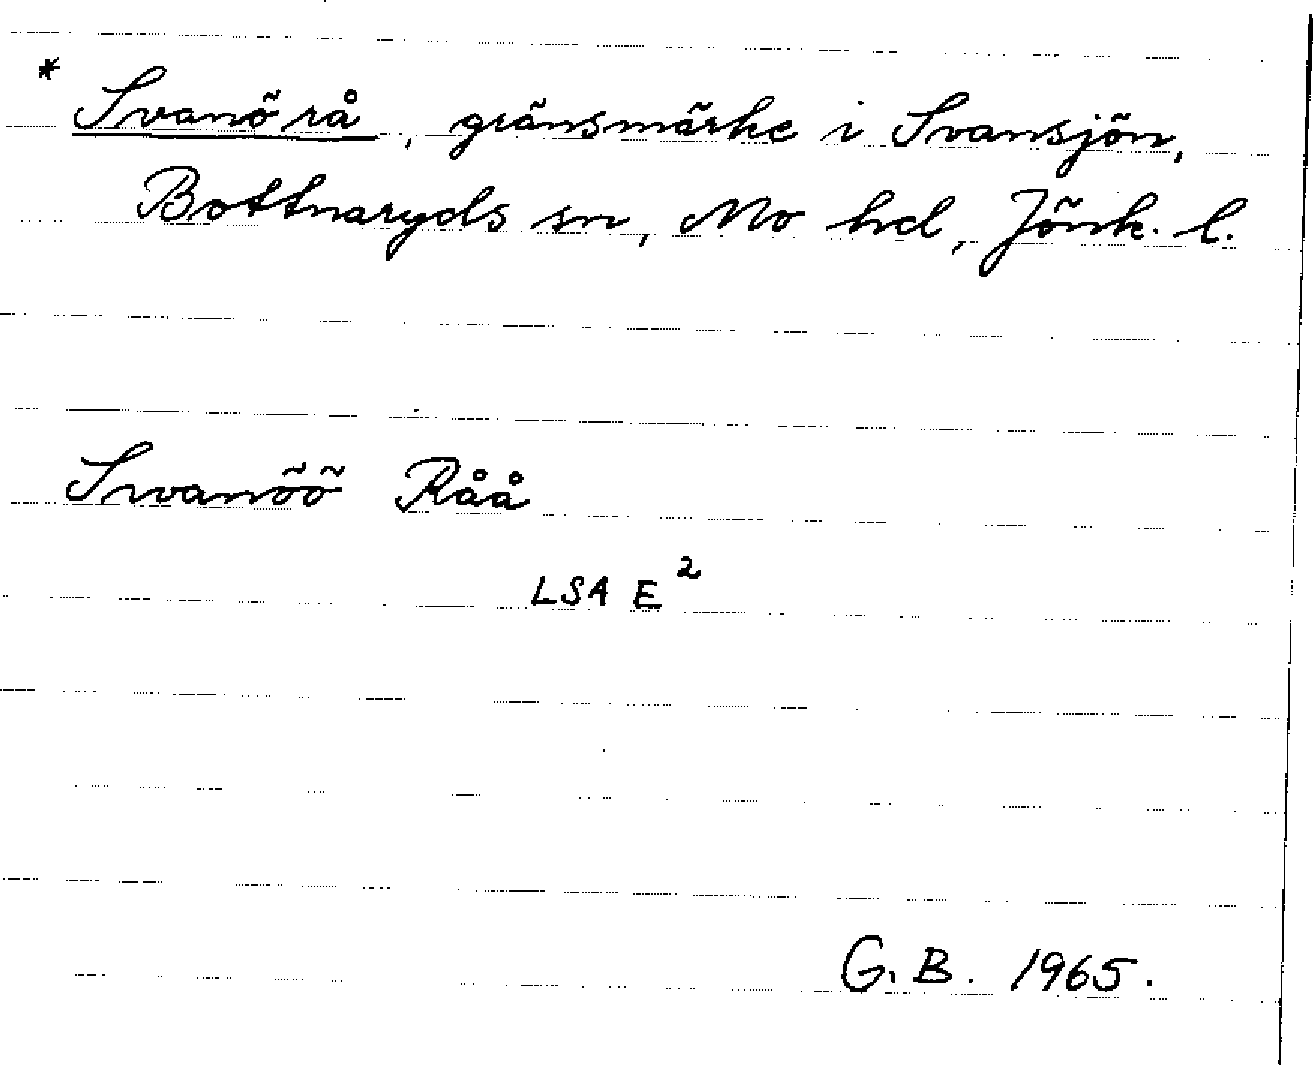 * Svanö rå, gränsmärke i Svansjön,
Bottnaryds sn, Mo hd, Jönk. l.
Swanöö Råå
LSA E²
G. B. 1965.